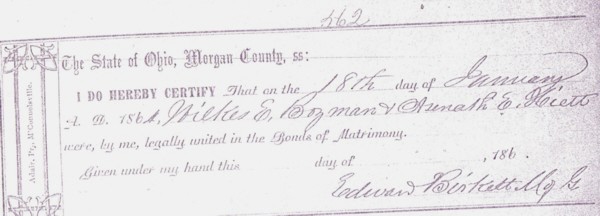 562
The State of Ohio, Morgan County, ss:
I DO HEREBY CERTIFY That on the 18th day of January
A. D. 1864, Wilkes E. Bozman & Asenath E. Hiett
were, by me, legally united in the Bonds of Matrimony.
Given under my hand this day of , 186 .
Edward Birkett M.G.
Adair, Pr., McConnelsville.